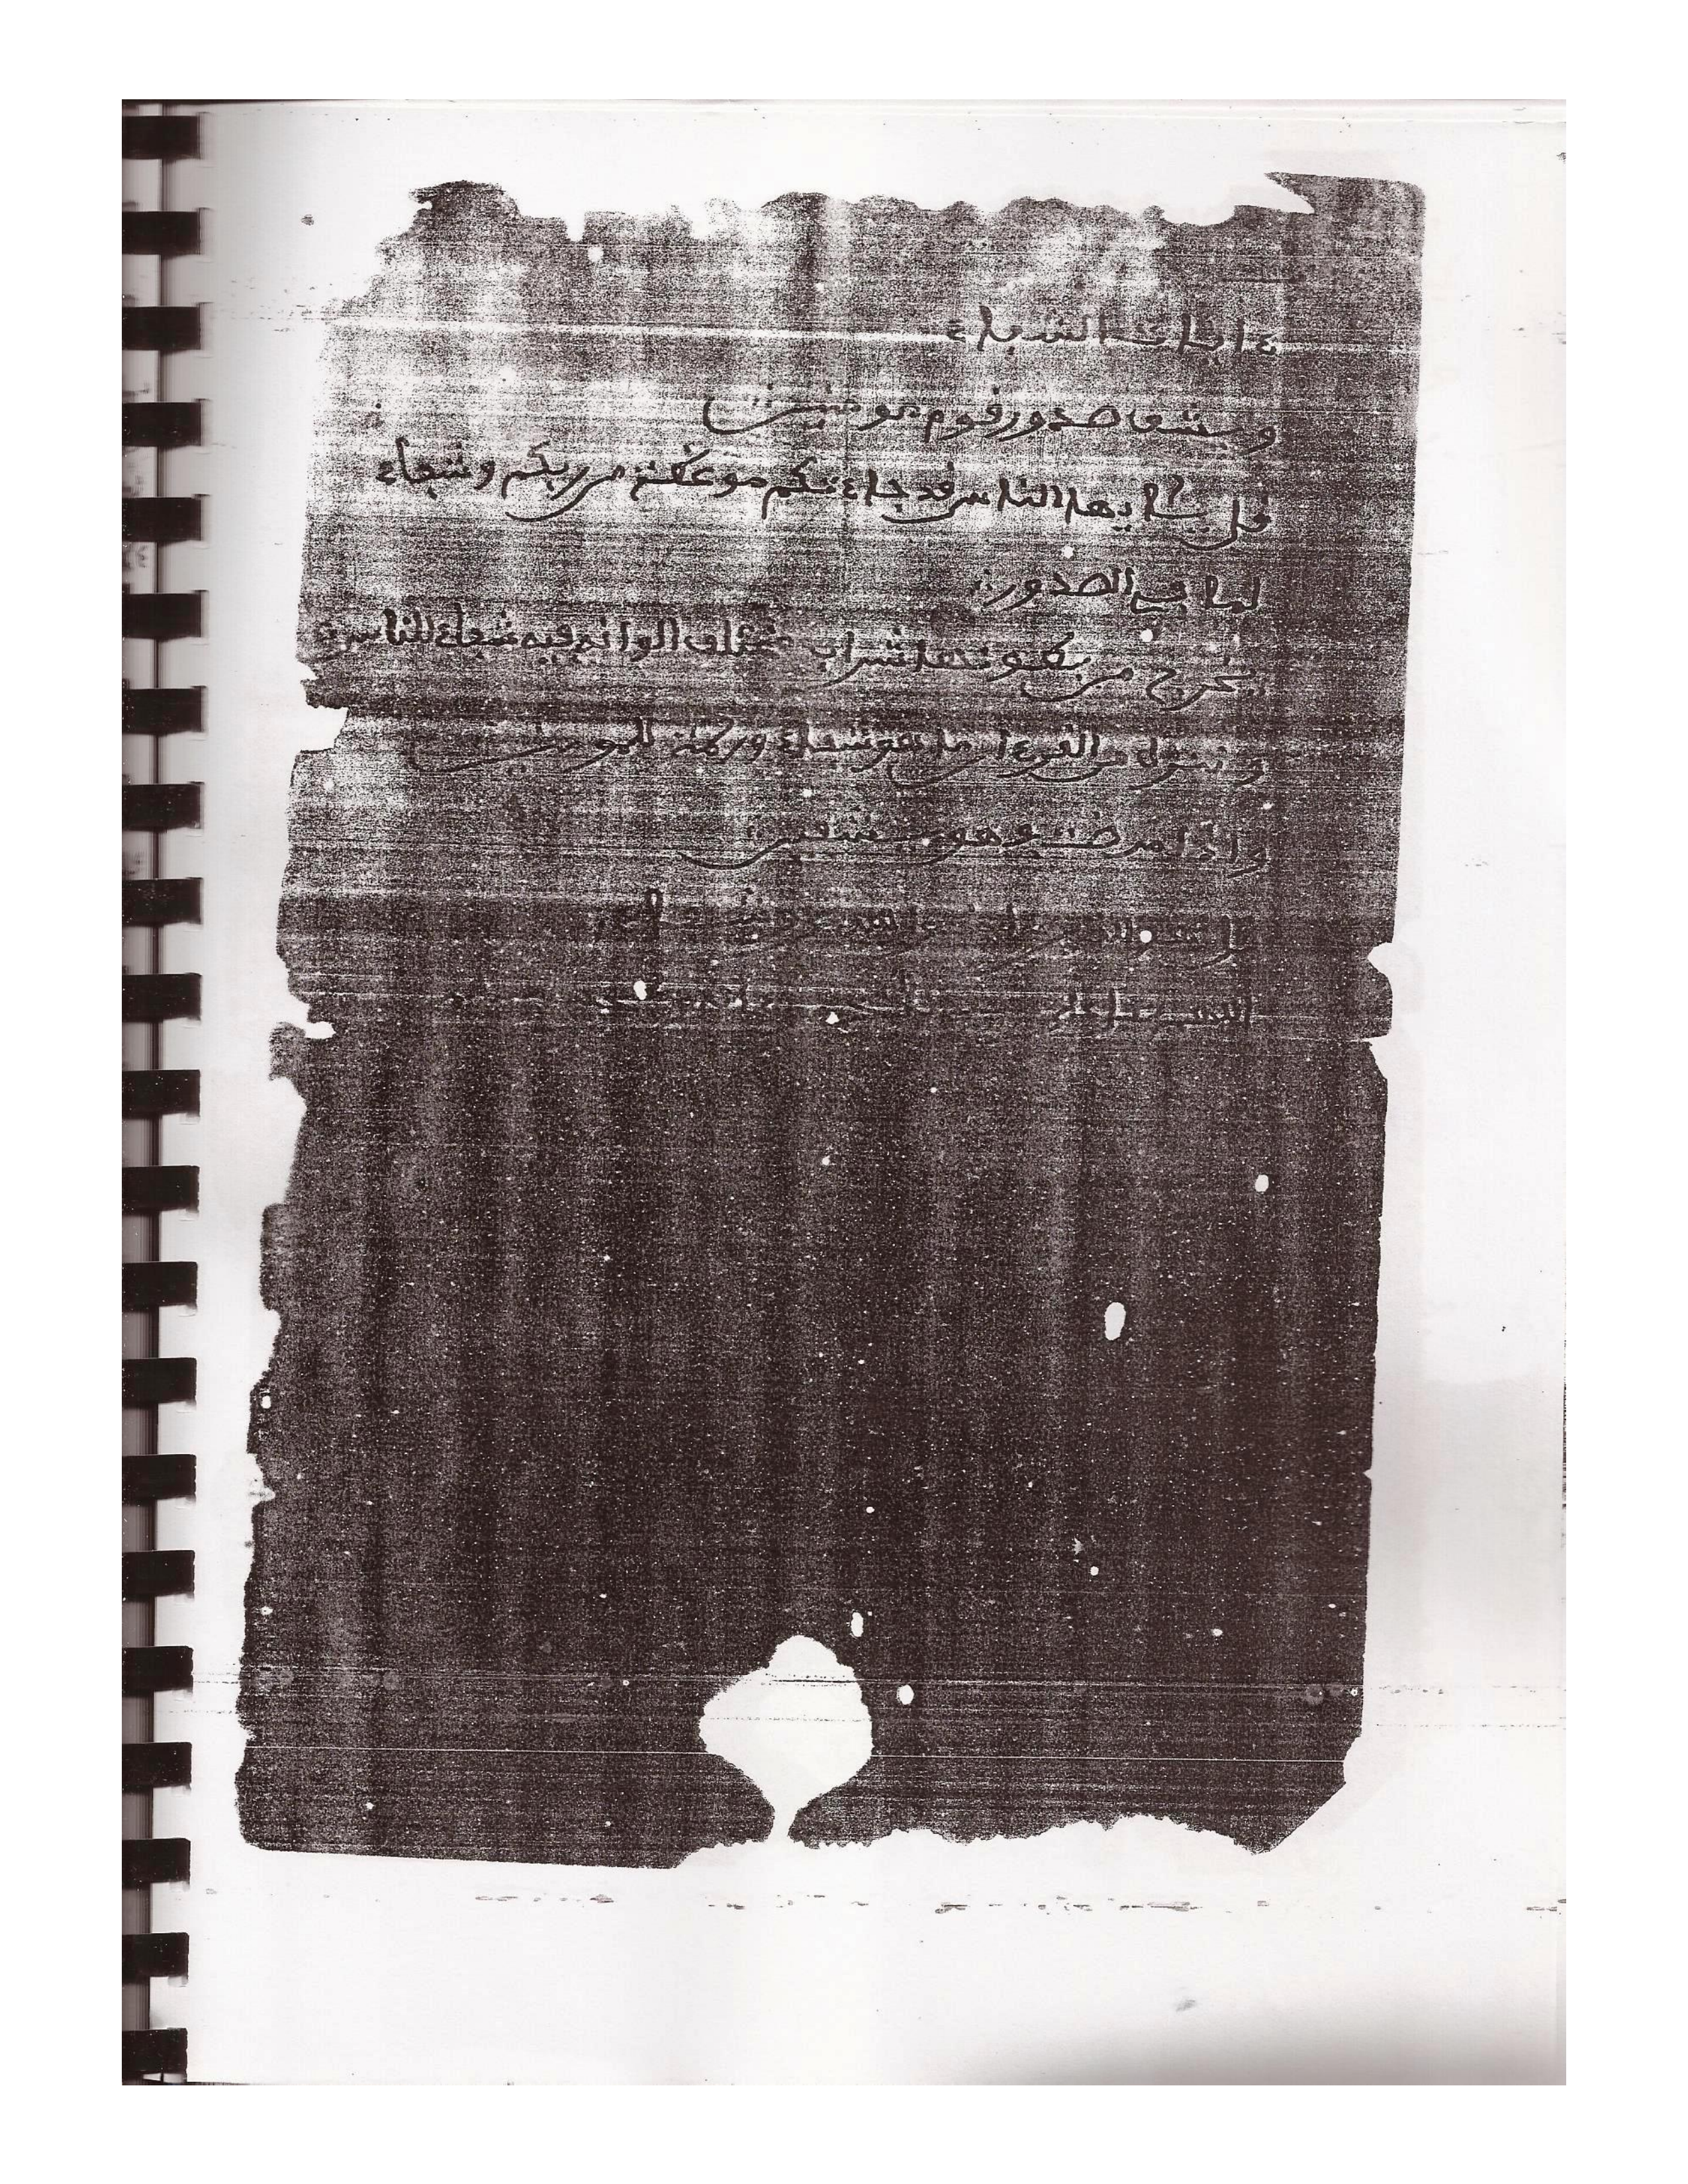 ءايات الشفاء
ويشف صدور قوم مومنين
قل يايها الناس قد جاءتكم موعظة من ربكم وشفاء
لما في الصدور
يخرج من بطونها شراب مختلف الوانه فيه شفاء للناس
وننزل من القرءان ما هو شفاء ورحمة للمومنين
واذا مرضت فهو يشفين